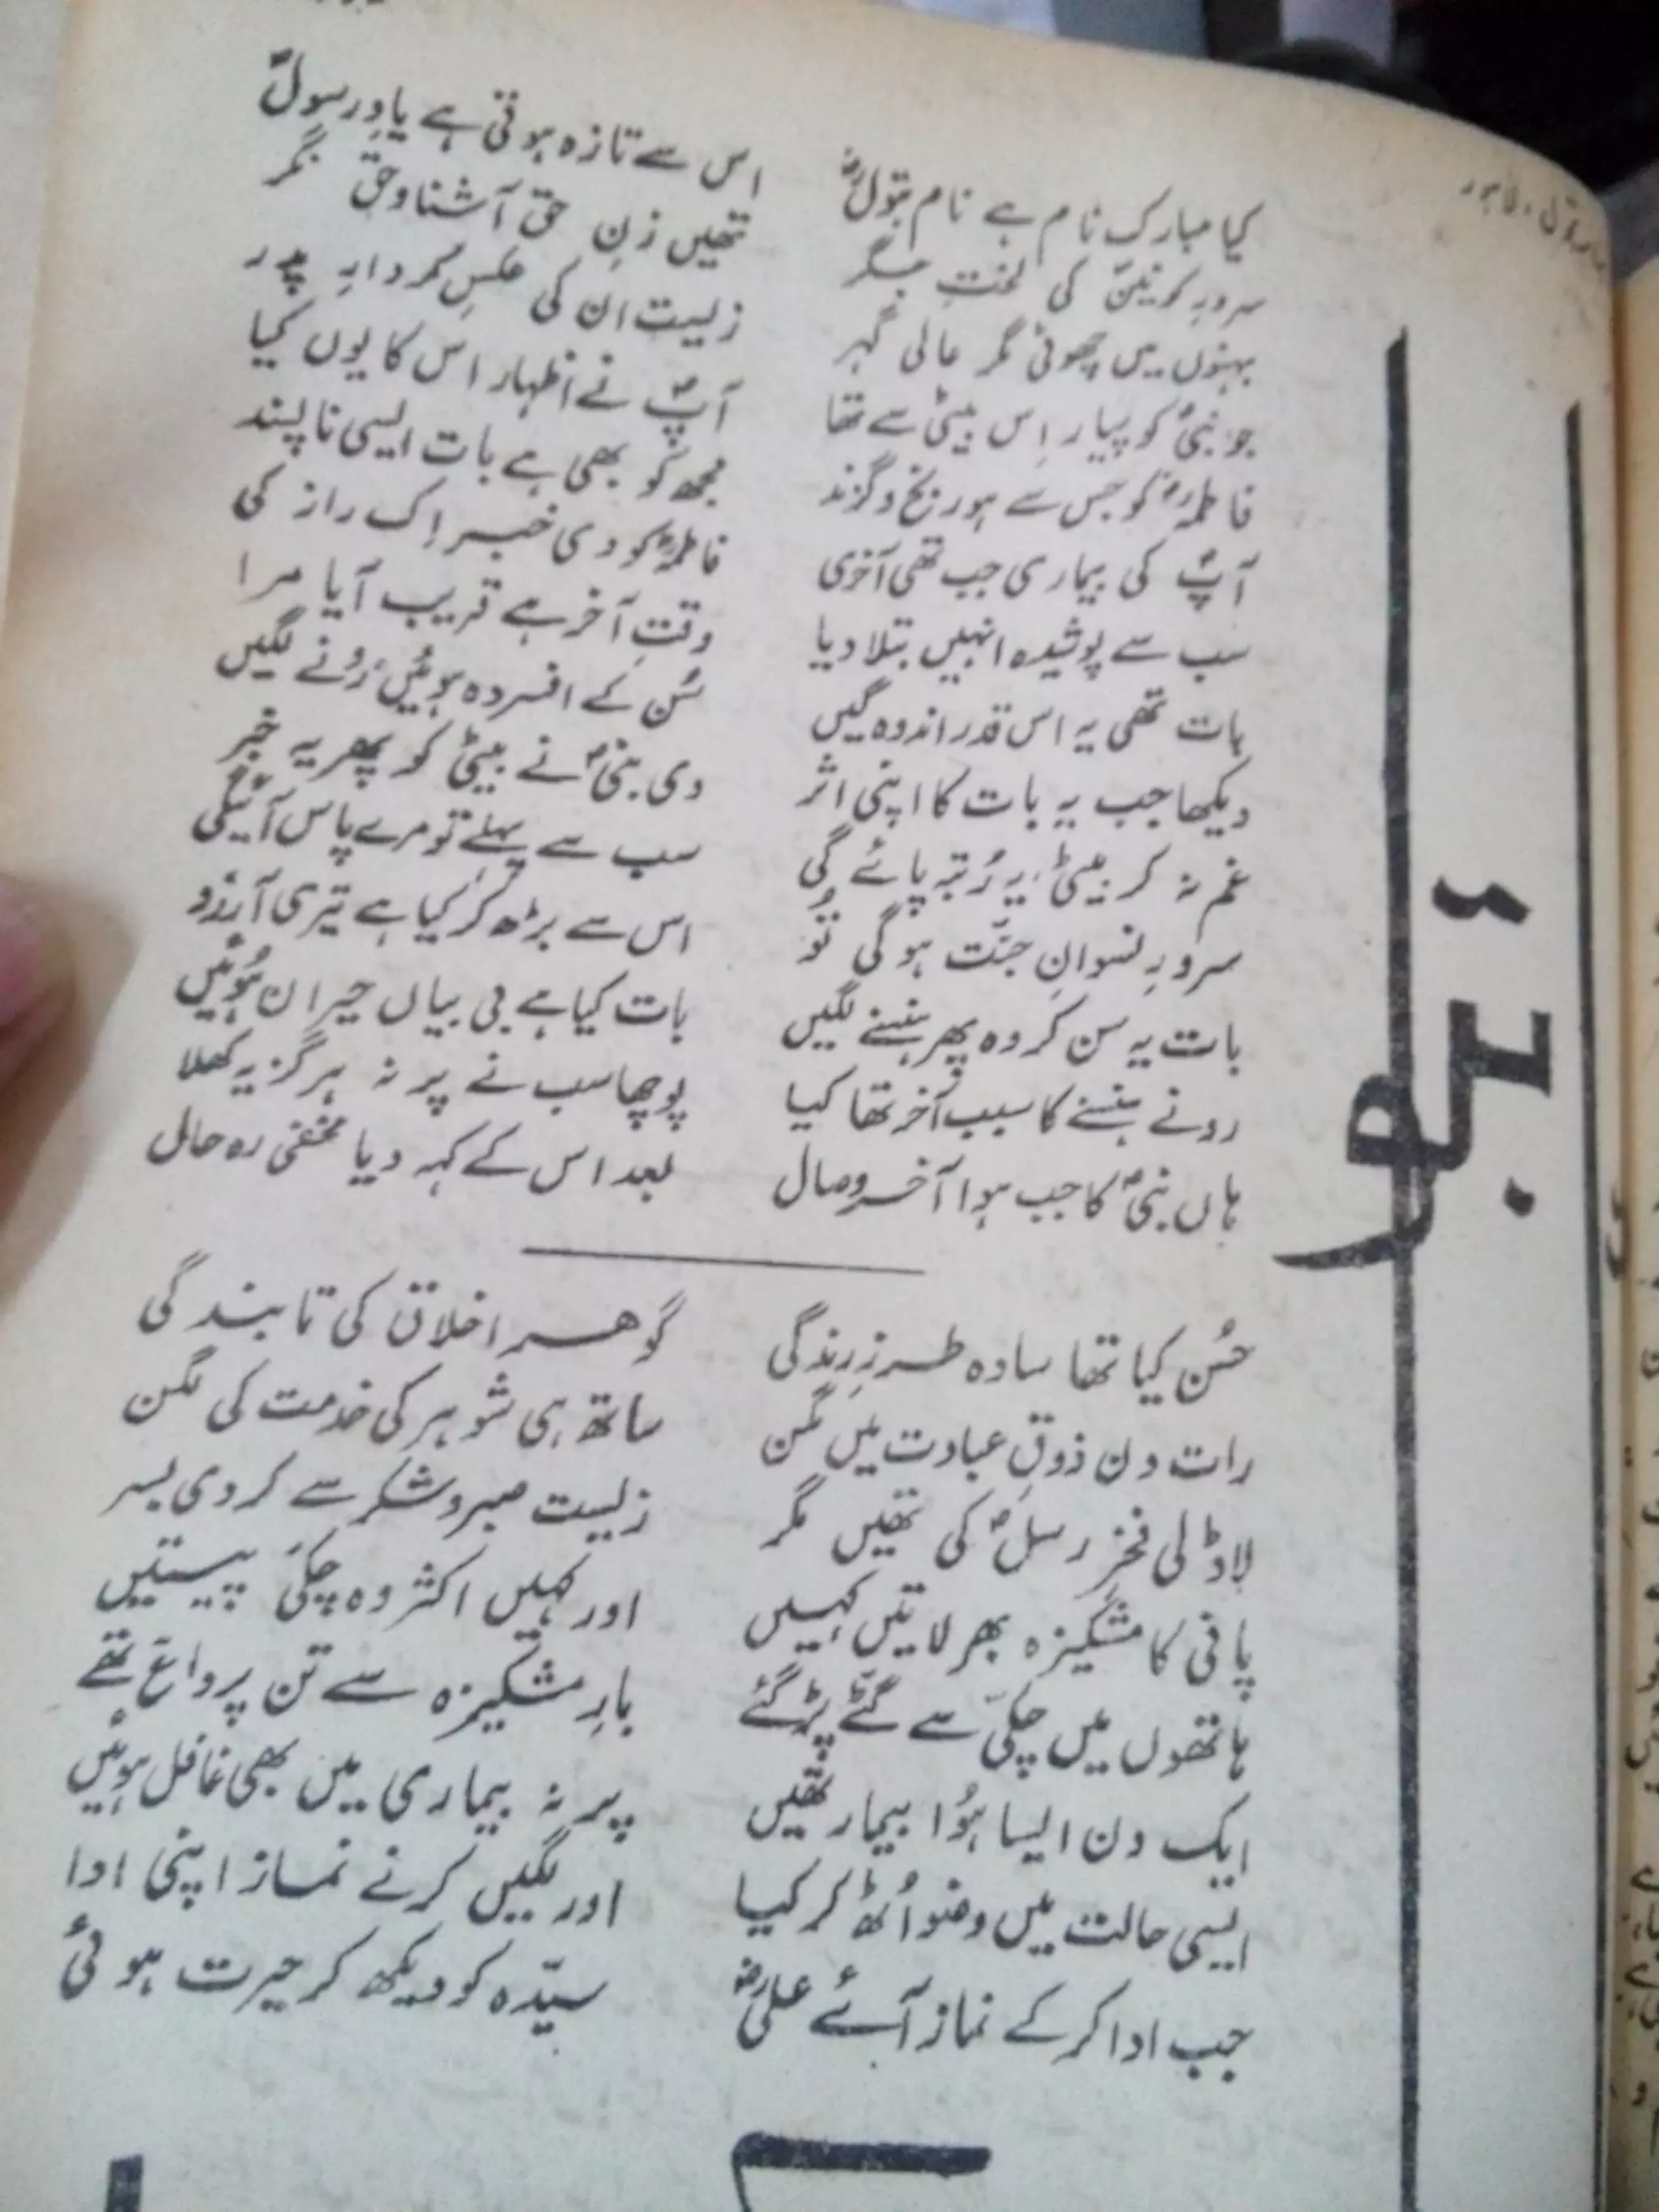 کیا مبارک نام ہے نام بتولؓ
اس سے تازہ ہوتی ہے یادِ رسولؐ
سرورِ کونینؐ کی لختِ جگر
تھیں زنِ حق آشنا و حق نگر
بہنوں میں چھوٹی مگر عالی گہر
زیست ان کی عکسِ کردارِ پدر
جو نبیؐ کو پیار اِس بیٹی سے تھا
آپؐ نے اظہار اس کا یوں کیا
فاطمہؓ کو جس سے ہو رنج و گزند
مجھ کو بھی ہے بات ایسی ناپسند
آپؐ کی بیماری جب تھی آخری
فاطمہؓ کو دی خبر اِک راز کی
سب سے پوشیدہ انہیں بتلا دیا
وقتِ آخر ہے قریب آیا مرا
بات تھی یہ اس قدر اندوہ گیں
سُن کے افسردہ ہوئیں رُونے لگیں
دیکھا جب یہ بات کا اپنی اثر
دی نبیؐ نے بیٹی کو پھر یہ خبر
غم نہ کر بیٹی، یہ رُتبہ پائے گی
سب سے پہلے تو مرے پاس آئیگی
سرورِ نسوانِ جنّت ہو گی تُو
اس سے بڑھ کر کیا ہے تیری آرزو
بات یہ سن کر وہ پھر ہنسنے لگیں
بات کیا ہے بی بیاں حیران ہُوئیں
رونے ہنسنے کا سبب آخر تھا کیا
پوچھا سب نے پر نہ ہرگز یہ کھلا
ہاں نبیؐ کا جب ہوا آخر وصال
بعد اس کے کہہ دیا مخفی رہ حال
حُسن کیا تھا سادہ طرزِ زندگی
گوہرِ اخلاق کی تابندگی
رات دن ذوقِ عبادت میں مگن
ساتھ ہی شوہر کی خدمت کی لگن
لاڈلی فخرِ رسلؐ کی تھیں مگر
زیست صبر و شکر سے کر دی بسر
پانی کا مشکیزہ بھر لاتیں کہیں
اور کہیں اکثر وہ چکّی پیستیں
ہاتھوں میں چکّی سے گٹے پڑ گئے
بارِ مشکیزہ سے تن پر داغ تھے
ایک دن ایسا ہُوا بیمار تھیں
پر نہ بیماری میں بھی غافل ہوئیں
ایسی حالت میں وضو اُٹھ کر کیا
اور لگیں کرنے نماز اپنی ادا
جب ادا کر کے نماز آئے علیؓ
سیّدہ کو دیکھ کر حیرت ہوئی